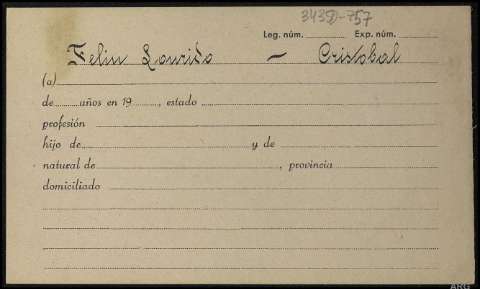 3432-757
Leg. núm. Exp. núm.
Felin Lourido — Cristobal
(a)
de años en 19 , estado
profesión
hijo de y de
natural de , provincia
domiciliado
ARG